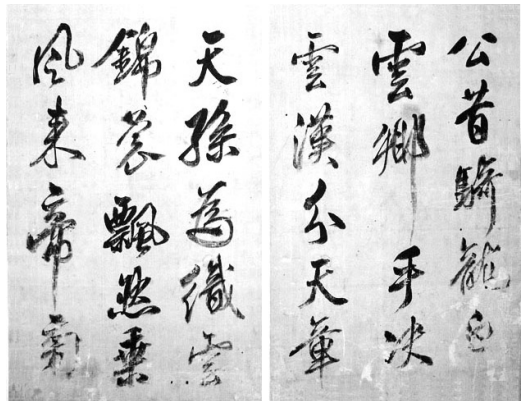 公昔騎龍白
雲鄉手抉
雲漢分天章
天孫為織雲
錦裳飄然乘
風來帝旁